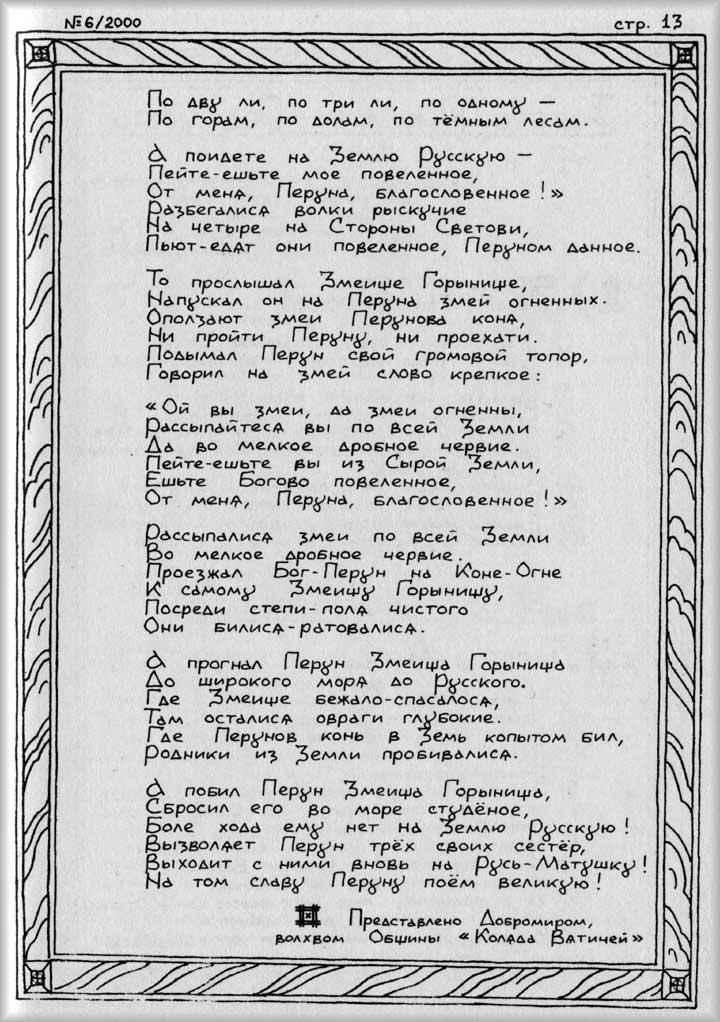 № 6/2000
стр. 13
По дву ли, по три ли, по одному —
По горам, по долам, по тёмным лесам.
А поидете на Землю Русскую —
Пейте-ешьте мое повеленное,
От меня, Перуна, благословенное!»
Разбегалися волки рыскучие
На четыре на Стороны Светови,
Пьют-едят они повеленное, Перуном данное.
То прослышал Змеище Горынище,
Напускал он на Перуна змей огненных.
Оползают змеи Перунова коня,
Ни пройти Перуну, ни проехати.
Подымал Перун свой громовой топор,
Говорил на змей слово крепкое:
«Ой вы змеи, да змеи огненны,
Рассыпайтеся вы по всей Земли
Да во мелкое дробное червие.
Пейте-ешьте вы из Сырой Земли,
Ешьте Богово повеленное,
От меня, Перуна, благословенное!»
Рассыпалися змеи по всей Земли
Во мелкое дробное червие.
Проезжал Бог-Перун на Коне-Огне
К самому Змеищу Горынищу,
Посреди степи-поля чистого
Они билися-ратовалися.
А прогнал Перун Змеища Горынища
До широкого моря до Русского.
Где Змеище бежало-спасалося,
Там осталися овраги глубокие.
Где Перунов конь в Земь копытом бил,
Родники из Земли пробивалися.
А побил Перун Змеища Горынища,
Сбросил его во море студёное,
Боле хода ему нет на Землю Русскую!
Вызволяет Перун трёх своих сестёр,
Выходит с ними вновь на Русь-Матушку!
На том славу Перуну поём великую!
Представлено Добромиром,
волхвом Общины «Коляда Вятичей»